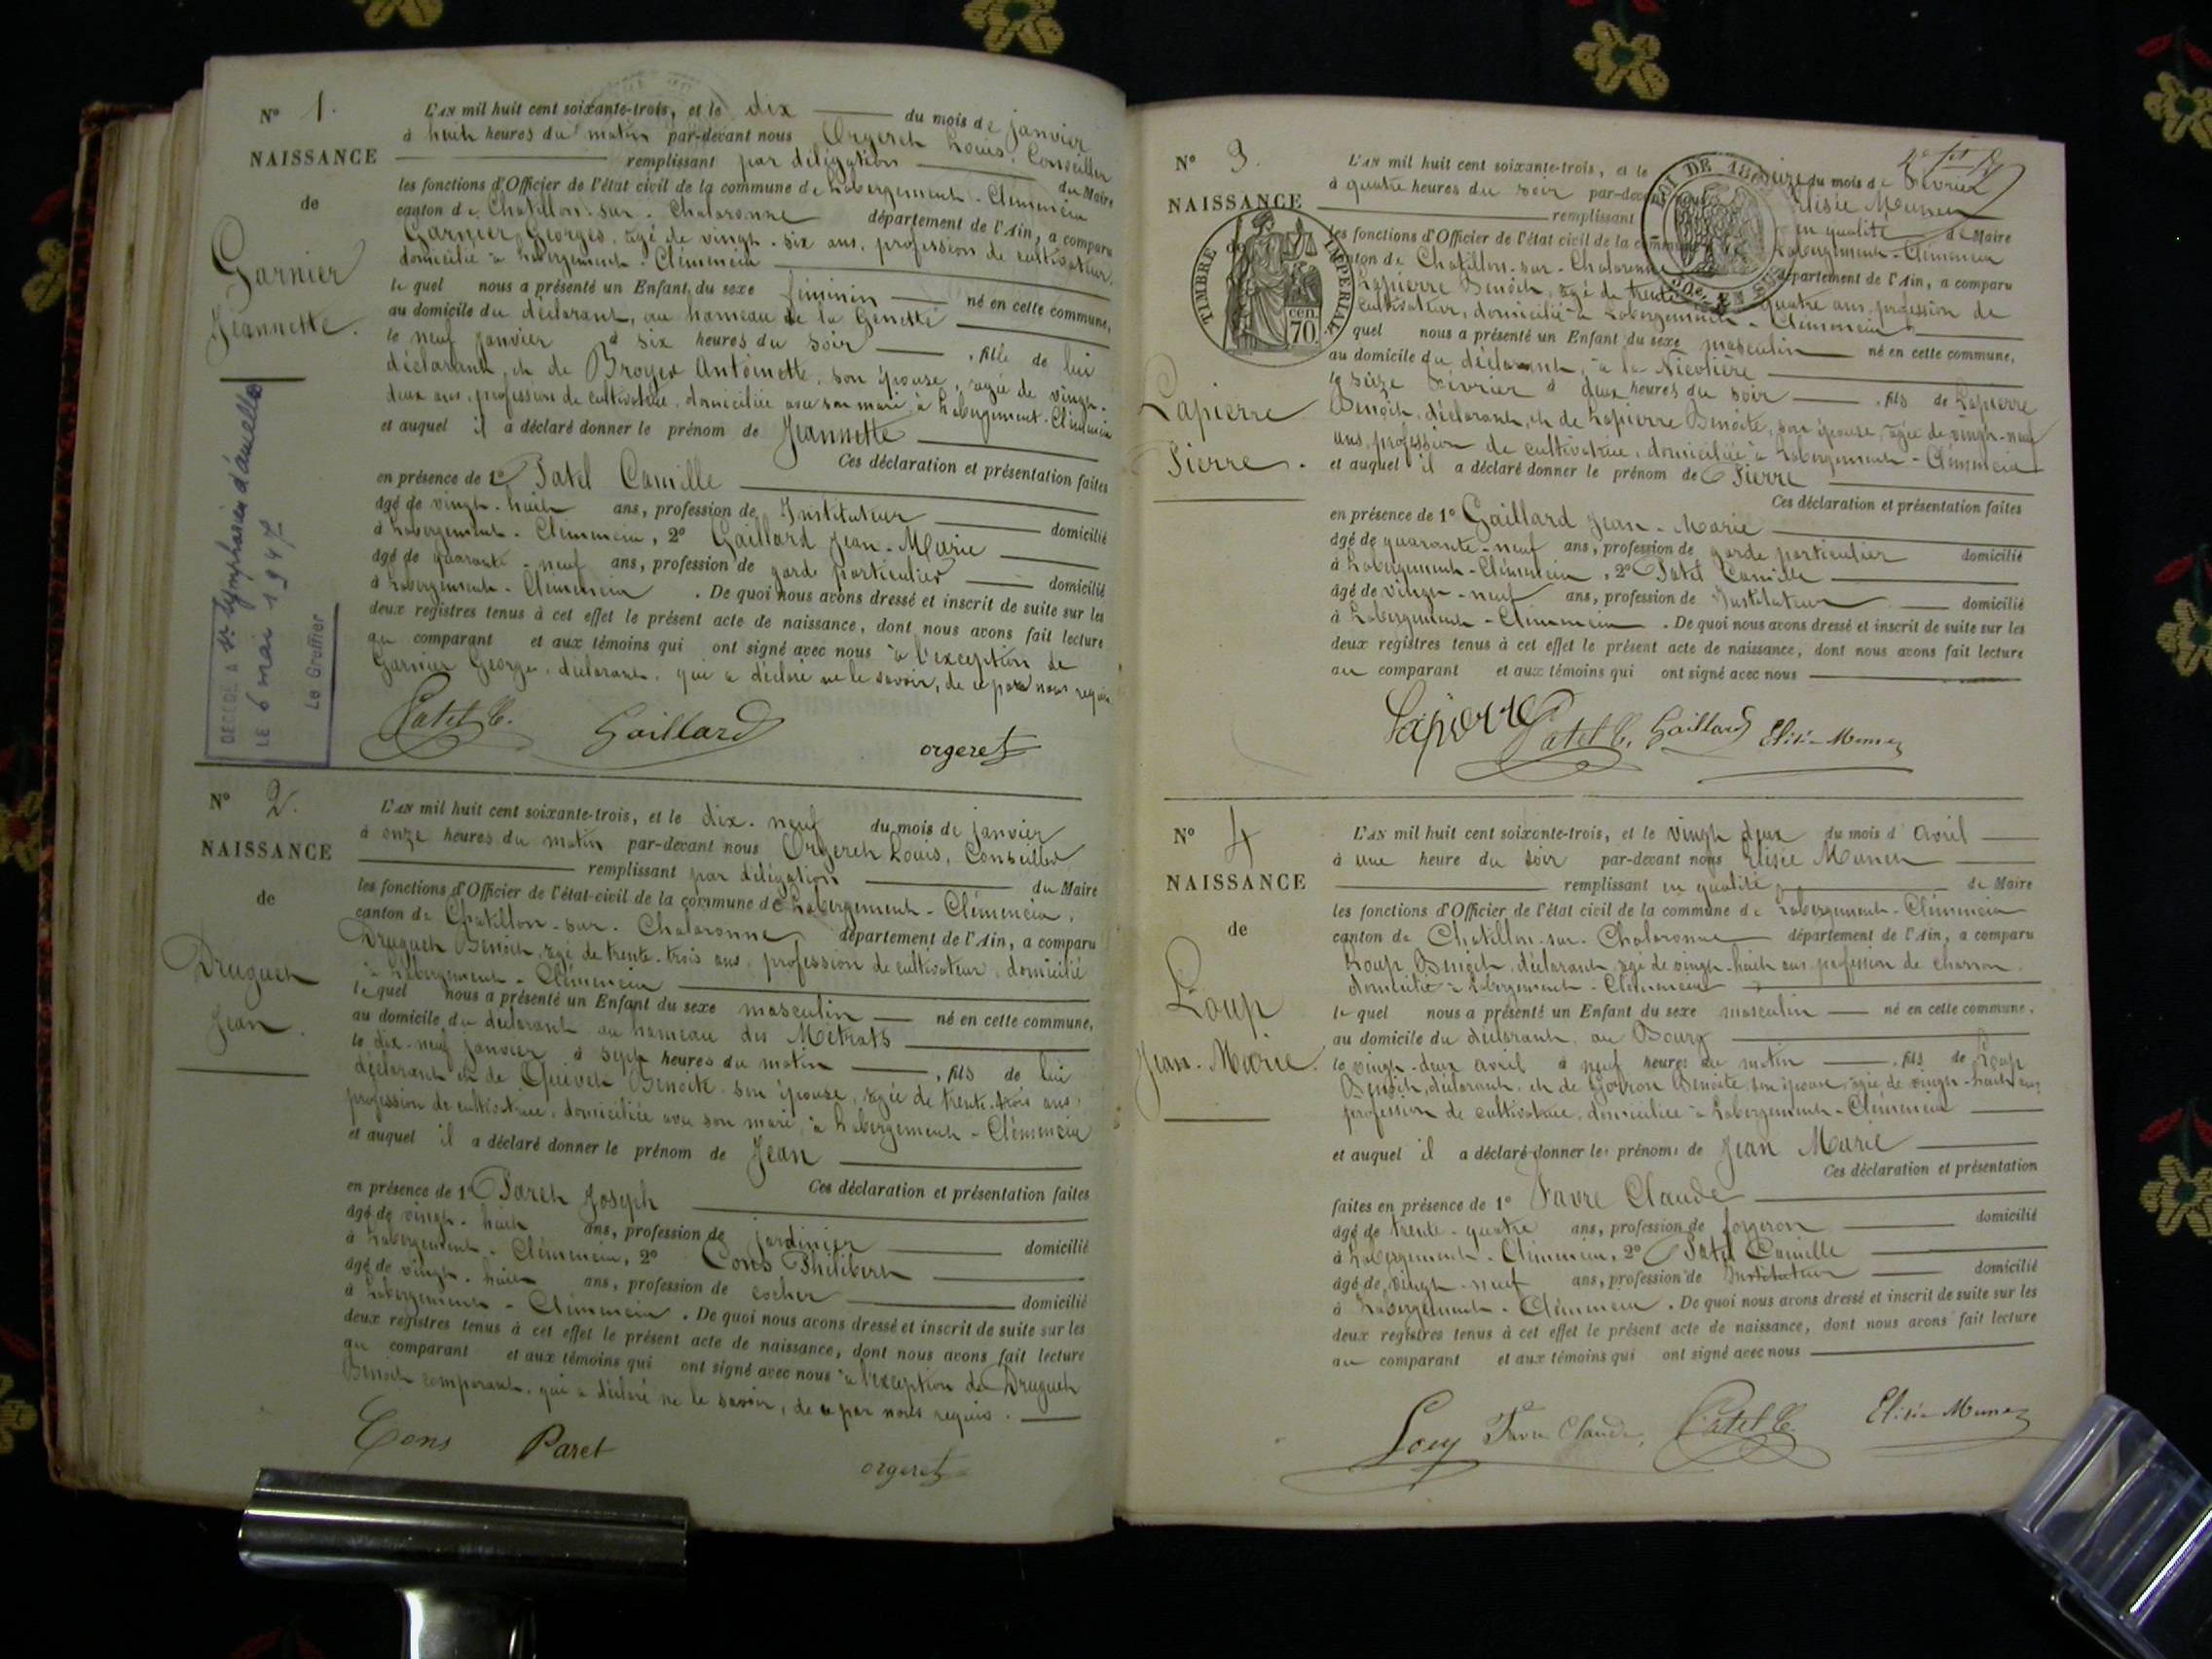 N° 1.
NAISSANCE
de
Garnier
Jeannette.
DÉCÉDÉ A St Symphorien d'ancelles
LE 6 mai 1947
Le Greffier
L'AN mil huit cent soixante-trois, et le dix du mois de janvier
à huit heures du matin par-devant nous Orgeret Louis, Conseiller
remplissant par délégation du Maire
les fonctions d'Officier de l'état civil de la commune de Labergement-Clémencia
canton de Chatillon-sur-Chalaronne département de l'Ain, a comparu
Garnier Georges, agé de vingt-six ans, profession de cultivateur,
domicilié à Labergement-Clémencia
le quel nous a présenté un Enfant du sexe féminin né en cette commune,
au domicile du déclarant, au hameau de la Genetté
le neuf janvier à six heures du soir, fille de lui
déclarant, et de Broyer Antoinette, son épouse, agée de vingt-
deux ans, profession de cultivatrice, domiciliée avec son mari, à Labergement-Clémencia
et auquel il a déclaré donner le prénom de Jeannette
Ces déclaration et présentation faites
en présence de 1° Patel Camille
âgé de vingt-huit ans, profession de Instituteur domicilié
à Labergement-Clémencia, 2° Gaillard Jean-Marie
âgé de quarante-neuf ans, profession de garde particulier domicilié
à Labergement-Clémencia. De quoi nous avons dressé et inscrit de suite sur les
deux registres tenus à cet effet le présent acte de naissance, dont nous avons fait lecture
au comparant et aux témoins qui ont signé avec nous à l'exception de
Garnier Georges, déclarant, qui a déclaré ne le savoir, de ce par nous requis
Patel C. Gaillard orgeret
N° 2.
NAISSANCE
de
Druguet
Jean.
L'AN mil huit cent soixante-trois, et le dix-neuf du mois de janvier
à onze heures du matin par-devant nous Orgeret Louis, Conseiller
remplissant par délégation du Maire
les fonctions d'Officier de l'état-civil de la commune de Labergement-Clémencia,
canton de Chatillon-sur-Chalaronne département de l'Ain, a comparu
Druguet Benoit, agé de trente-trois ans, profession de cultivateur, domicilié
à Labergement-Clémencia
le quel nous a présenté un Enfant du sexe masculin né en cette commune,
au domicile du déclarant au hameau des Métrats
le dix-neuf janvier à sept heures du matin, fils de lui
déclarant et de Quivet Benoite son épouse, agée de trente-trois ans,
profession de cultivatrice, domiciliée avec son mari, à Labergement-Clémencia
et auquel il a déclaré donner le prénom de Jean
Ces déclaration et présentation faites
en présence de 1° Paret Joseph
âgé de vingt-huit ans, profession de jardinier domicilié
à Labergement-Clémencia, 2° Cons Philibert
âgé de vingt-huit ans, profession de cocher domicilié
à Labergement-Clémencia. De quoi nous avons dressé et inscrit de suite sur les
deux registres tenus à cet effet le présent acte de naissance, dont nous avons fait lecture
au comparant et aux témoins qui ont signé avec nous à l'exception de Druguet
Benoit comparant, qui a déclaré ne le savoir, de ce par nous requis.
Cons Paret orgeret
N° 3.
NAISSANCE
de
TIMBRE IMPERIAL
cen. 70
Lapierre
Pierre.
L'AN mil huit cent soixante-trois, et le seize du mois de février
à quatre heures du soir par-devant Elisée Munet
remplissant en qualité de Maire
les fonctions d'Officier de l'état civil de la commune Labergement-Clémencia
canton de Chatillon-sur-Chalaronne département de l'Ain, a comparu
Lapierre Benoit, agé de trente quatre ans, profession de
cultivateur, domicilié à Labergement-Clémencia
quel nous a présenté un Enfant du sexe masculin né en cette commune,
au domicile du déclarant, à la Nicotière
le seize février à deux heures du soir, fils de Lapierre
Benoit, déclarant, et de Lapierre Benoite, son épouse, agée de vingt-neuf
ans, profession de cultivatrice, domiciliée à Labergement-Clémencia
et auquel il a déclaré donner le prénom de Pierre
Ces déclaration et présentation faites
en présence de 1° Gaillard Jean-Marie
âgé de quarante-neuf ans, profession de garde particulier domicilié
à Labergement-Clémencia, 2° Patel Camille
âgé de vingt-neuf ans, profession de Instituteur domicilié
à Labergement-Clémencia. De quoi nous avons dressé et inscrit de suite sur les
deux registres tenus à cet effet le présent acte de naissance, dont nous avons fait lecture
au comparant et aux témoins qui ont signé avec nous
Lapierre Patel C, Gaillard Elisée Munet
N° 4
NAISSANCE
de
Loup
Jean-Marie.
L'AN mil huit cent soixante-trois, et le vingt deux du mois d'avril
à une heure du soir par-devant nous Elisée Munet
remplissant en qualité de Maire
les fonctions d'Officier de l'état civil de la commune de Labergement-Clémencia
canton de Chatillon-sur-Chalaronne département de l'Ain, a comparu
Loup Benoit, déclarant, agé de vingt-huit ans, profession de charron
domicilié à Labergement-Clémencia
le quel nous a présenté un Enfant du sexe masculin né en cette commune,
au domicile du déclarant, au Bourg
le vingt-deux avril à neuf heures du matin, fils de Loup
Benoit, déclarant, et de Goyron Benoite, son épouse, agée de vingt-huit ans,
profession de cultivatrice, domiciliée à Labergement-Clémencia
et auquel il a déclaré donner les prénoms de Jean Marie
Ces déclaration et présentation
faites en présence de 1° Favre Claude
âgé de trente-quatre ans, profession de forgeron domicilié
à Labergement-Clémencia, 2° Patel Camille
âgé de vingt-neuf ans, profession de Instituteur domicilié
à Labergement-Clémencia. De quoi nous avons dressé et inscrit de suite sur les
deux registres tenus à cet effet le présent acte de naissance, dont nous avons fait lecture
au comparant et aux témoins qui ont signé avec nous
Loup Favre Claude, Patel C. Elisée Munet